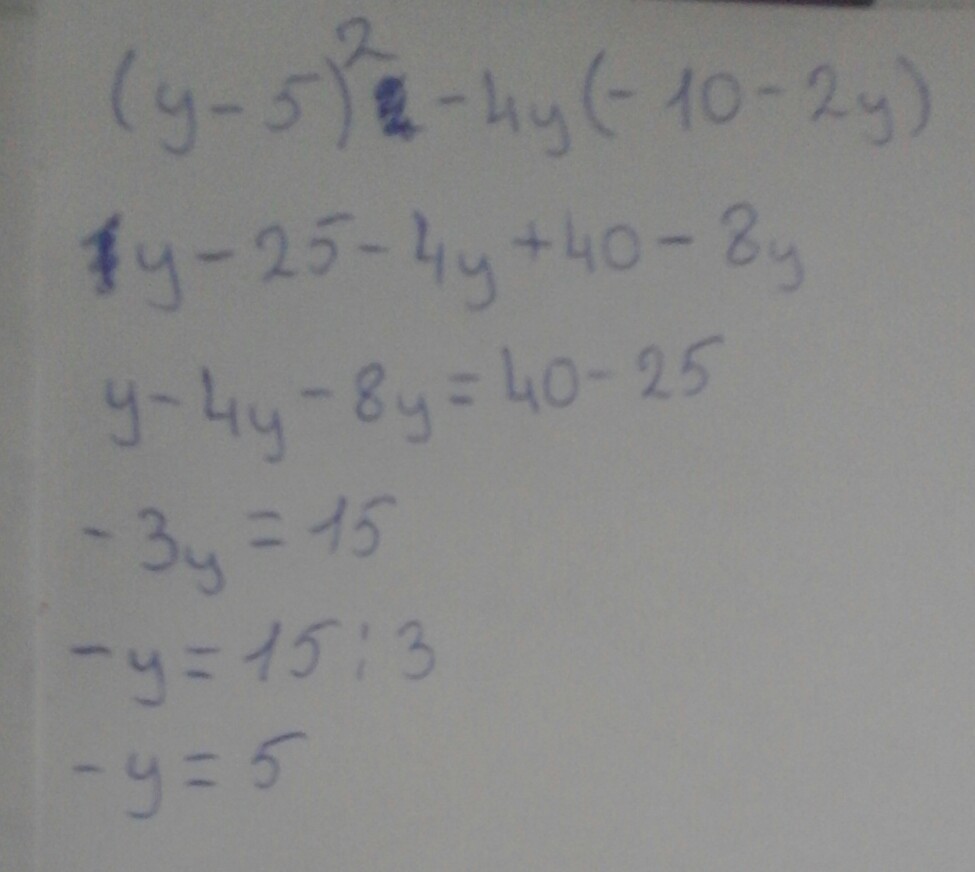 (y-5)² -4y(-10-2y)
1y-25-4y+40-8y
y-4y-8y=40-25
-3y=15
-y=15:3
-y=5